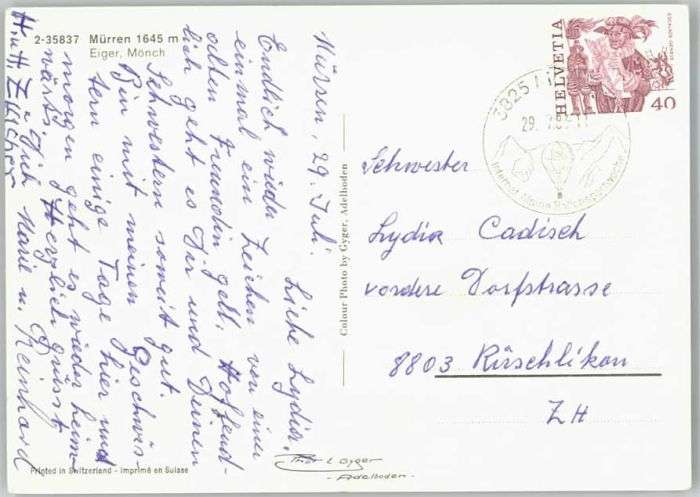 2-35837 Mürren 1645 m
Eiger, Mönch
Mürren, 29. Juli.
Liebe Lydia,
Endlich wieder
einmal ein Zeichen von einer
alten Freundin gell. Hoffend-
lich geht es Dir und Deinen
Schwestern soweit gut.
Bin mit meinen Geschwis-
tern einige Tage hier und
morgen geht es wieder heim-
wärts. Herzlich grüsst
Dich Marie u. Reinhard
H. u. H. Zürcher
Colour Photo by Gyger, Adelboden
HELVETIA
40
3825
29.
Schwester
Lydia Cadisch
vordere Dorfstrasse
8803 Rüschlikon
ZH
Printed in Switzerland - Imprimé en Suisse
Gyger
- Adelboden -